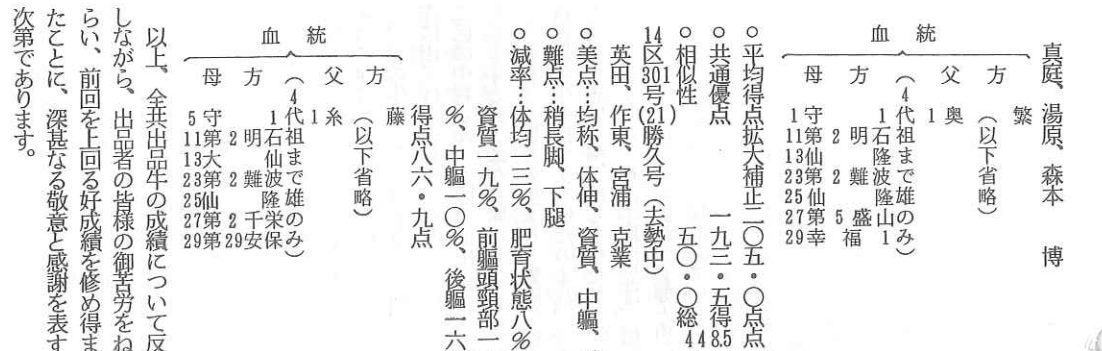 真庭、湯原、森本　博
血統
父方
1奥繁
(以下省略)
母方
(4代祖まで雄のみ)
1守1
11第2明石
13仙隆
23第2難波
25仙隆
27第5盛山
29幸福1
○平均得点拡大補正二〇五・〇点
○共通優点　一九三・五点
○相似性　五〇・〇
総得点448.5
14区301号(21)勝久号(去勢中)
英田、作東、宮浦　克業
○美点…均称、体伸、資質、中軀、
○難点…稍長脚、下腿
○減率…体均一三%、肥育状態八%
資質一九%、前軀頭頸部一
%、中軀一〇%、後軀一六
得点八六・九点
血統
父方
1糸藤
(以下省略)
母方
(4代祖まで雄のみ)
5守1
11第2明石
13大仙
23第2難波
25仙隆
27第2千栄
29第29安保
以上、全共出品牛の成績について反
しながら、出品者の皆様の御苦労をね
らい、前回を上回る好成績を修め得ま
たことに、深甚なる敬意と感謝を表す
次第であります。